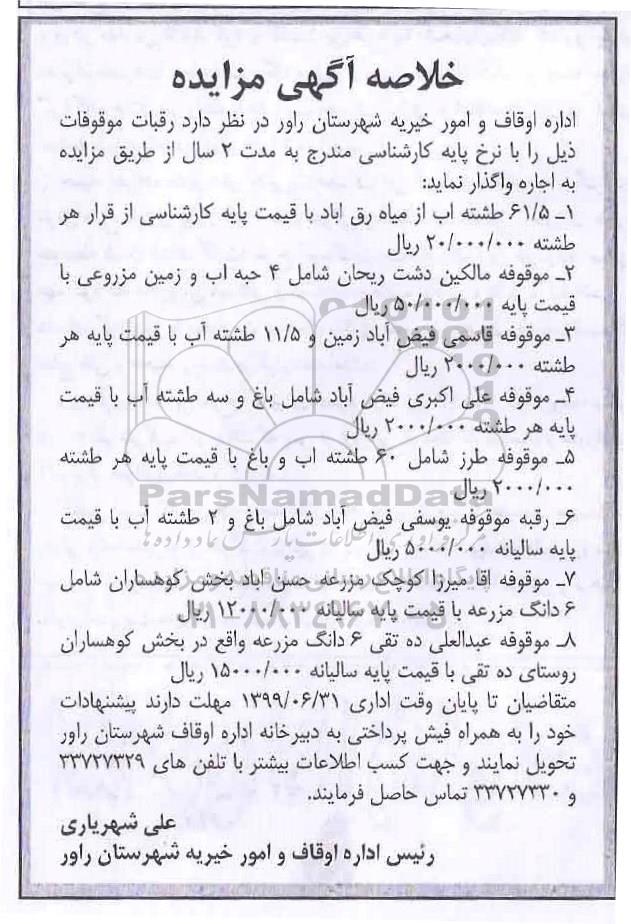 خلاصه آگهی مزایده
اداره اوقاف و امور خیریه شهرستان راور در نظر دارد رقبات موقوفات
ذیل را با نرخ پایه کارشناسی مندرج به مدت ۲ سال از طریق مزایده
به اجاره واگذار نماید:
۱ـ ۶۱/۵ طشته اب از میاه رق اباد با قیمت پایه کارشناسی از قرار هر
طشته ۲۰/۰۰۰/۰۰۰ ریال
۲ـ موقوفه مالکین دشت ریحان شامل ۴ حبه اب و زمین مزروعی با
قیمت پایه ۵۰/۰۰۰/۰۰۰ ریال
۳ـ موقوفه قاسمی فیض آباد زمین و ۱۱/۵ طشته آب با قیمت پایه هر
طشته ۲۰۰۰/۰۰۰ ریال
۴ـ موقوفه علی اکبری فیض آباد شامل باغ و سه طشته آب با قیمت
پایه هر طشته ۲۰۰۰/۰۰۰ ریال
۵ـ موقوفه طرز شامل ۶۰ طشته اب و باغ با قیمت پایه هر طشته
۲۰۰۰/۰۰۰ ریال
ParsNamadData
۶ـ رقبه موقوفه یوسفی فیض آباد شامل باغ و ۲ طشته آب با قیمت
پایه سالیانه ۵۰۰۰/۰۰۰ ریال
۷ـ موقوفه اقا میرزا کوچک مزرعه حسن آباد بخش کوهساران شامل
۶ دانگ مزرعه با قیمت پایه سالیانه ۱۲۰۰۰/۰۰۰ ریال
۰۲۱-۸۸۳۴۹۶۷۰-۵
۸ـ موقوفه عبدالعلی ده تقی ۶ دانگ مزرعه واقع در بخش کوهساران
روستای ده تقی با قیمت پایه سالیانه ۱۵۰۰۰/۰۰۰ ریال
متقاضیان تا پایان وقت اداری ۱۳۹۹/۰۶/۳۱ مهلت دارند پیشنهادات
خود را به همراه فیش پرداختی به دبیرخانه اداره اوقاف شهرستان راور
تحویل نمایند و جهت کسب اطلاعات بیشتر با تلفن های ۳۳۷۲۷۳۲۹
و ۳۳۷۲۷۳۳۰ تماس حاصل فرمایند.
علی شهریاری
رئیس اداره اوقاف و امور خیریه شهرستان راور